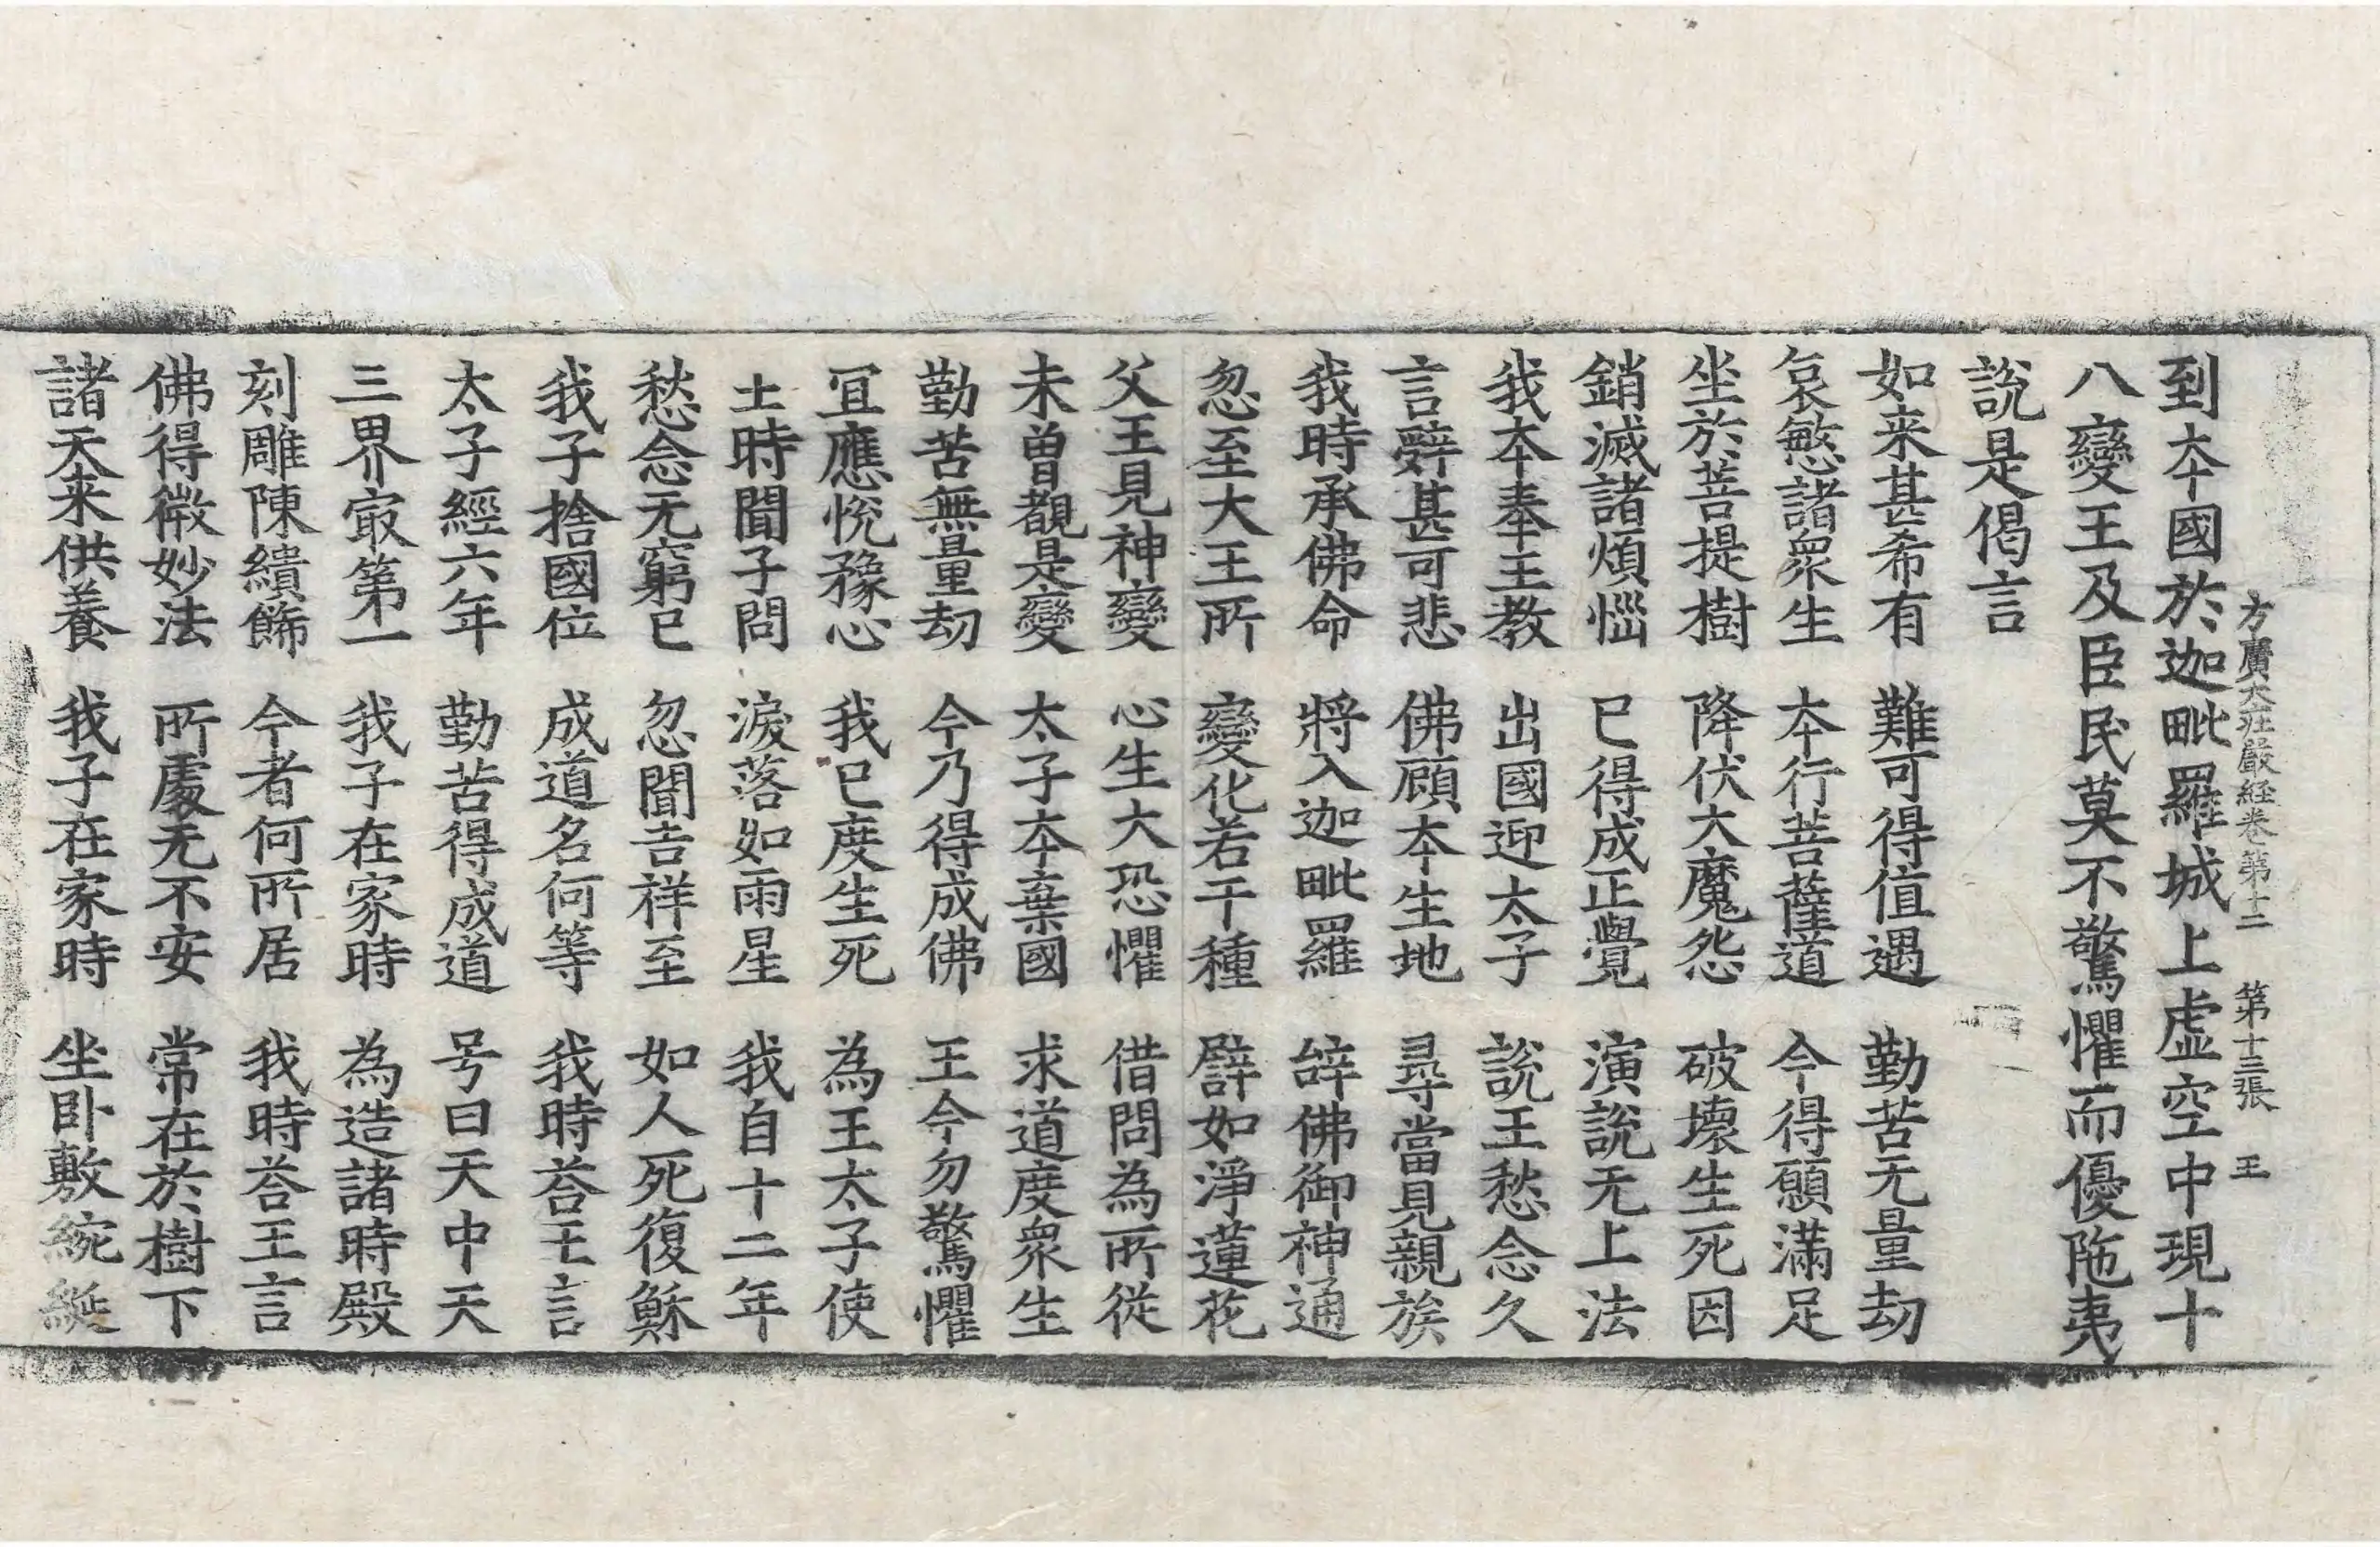 方廣大莊嚴経卷第十二 第十三張 王
到本國於迦毗羅城上虛空中現十
八變王及臣民莫不驚懼而優陁夷
說是偈言
如来甚希有 難可得值遇 勤苦无量劫
哀愍諸衆生 本行菩薩道 今得願滿足
坐於菩提樹 降伏大魔怨 破壞生死因
銷滅諸煩惱 已得成正覺 演說无上法
我本奉王教 出國迎太子 說王愁念久
言辭甚可悲 佛顧本生地 尋當見親族
我時承佛命 將入迦毗羅 辝佛御神通
忽至大王所 變化若干種 譬如淨蓮花
父王見神變 心生大恐懼 借問為所從
未曽覩是變 太子本棄國 求道度衆生
勤苦無量劫 今乃得成佛 王今勿驚懼
冝應悅豫心 我已度生死 為王太子使
土時聞子問 淚落如雨星 我自十二年
愁念无窮已 忽聞吉祥至 如人死復穌
我子捨國位 成道名何等 我時荅王言
太子經六年 勤苦得成道 号曰天中天
三界㝡第一 我子在家時 為造諸時殿
刻雕陳繢飾 今者何所居 我時荅王言
佛得微妙法 所處无不安 常在於樹下
諸天来供養 我子在家時 坐卧敷綩綖